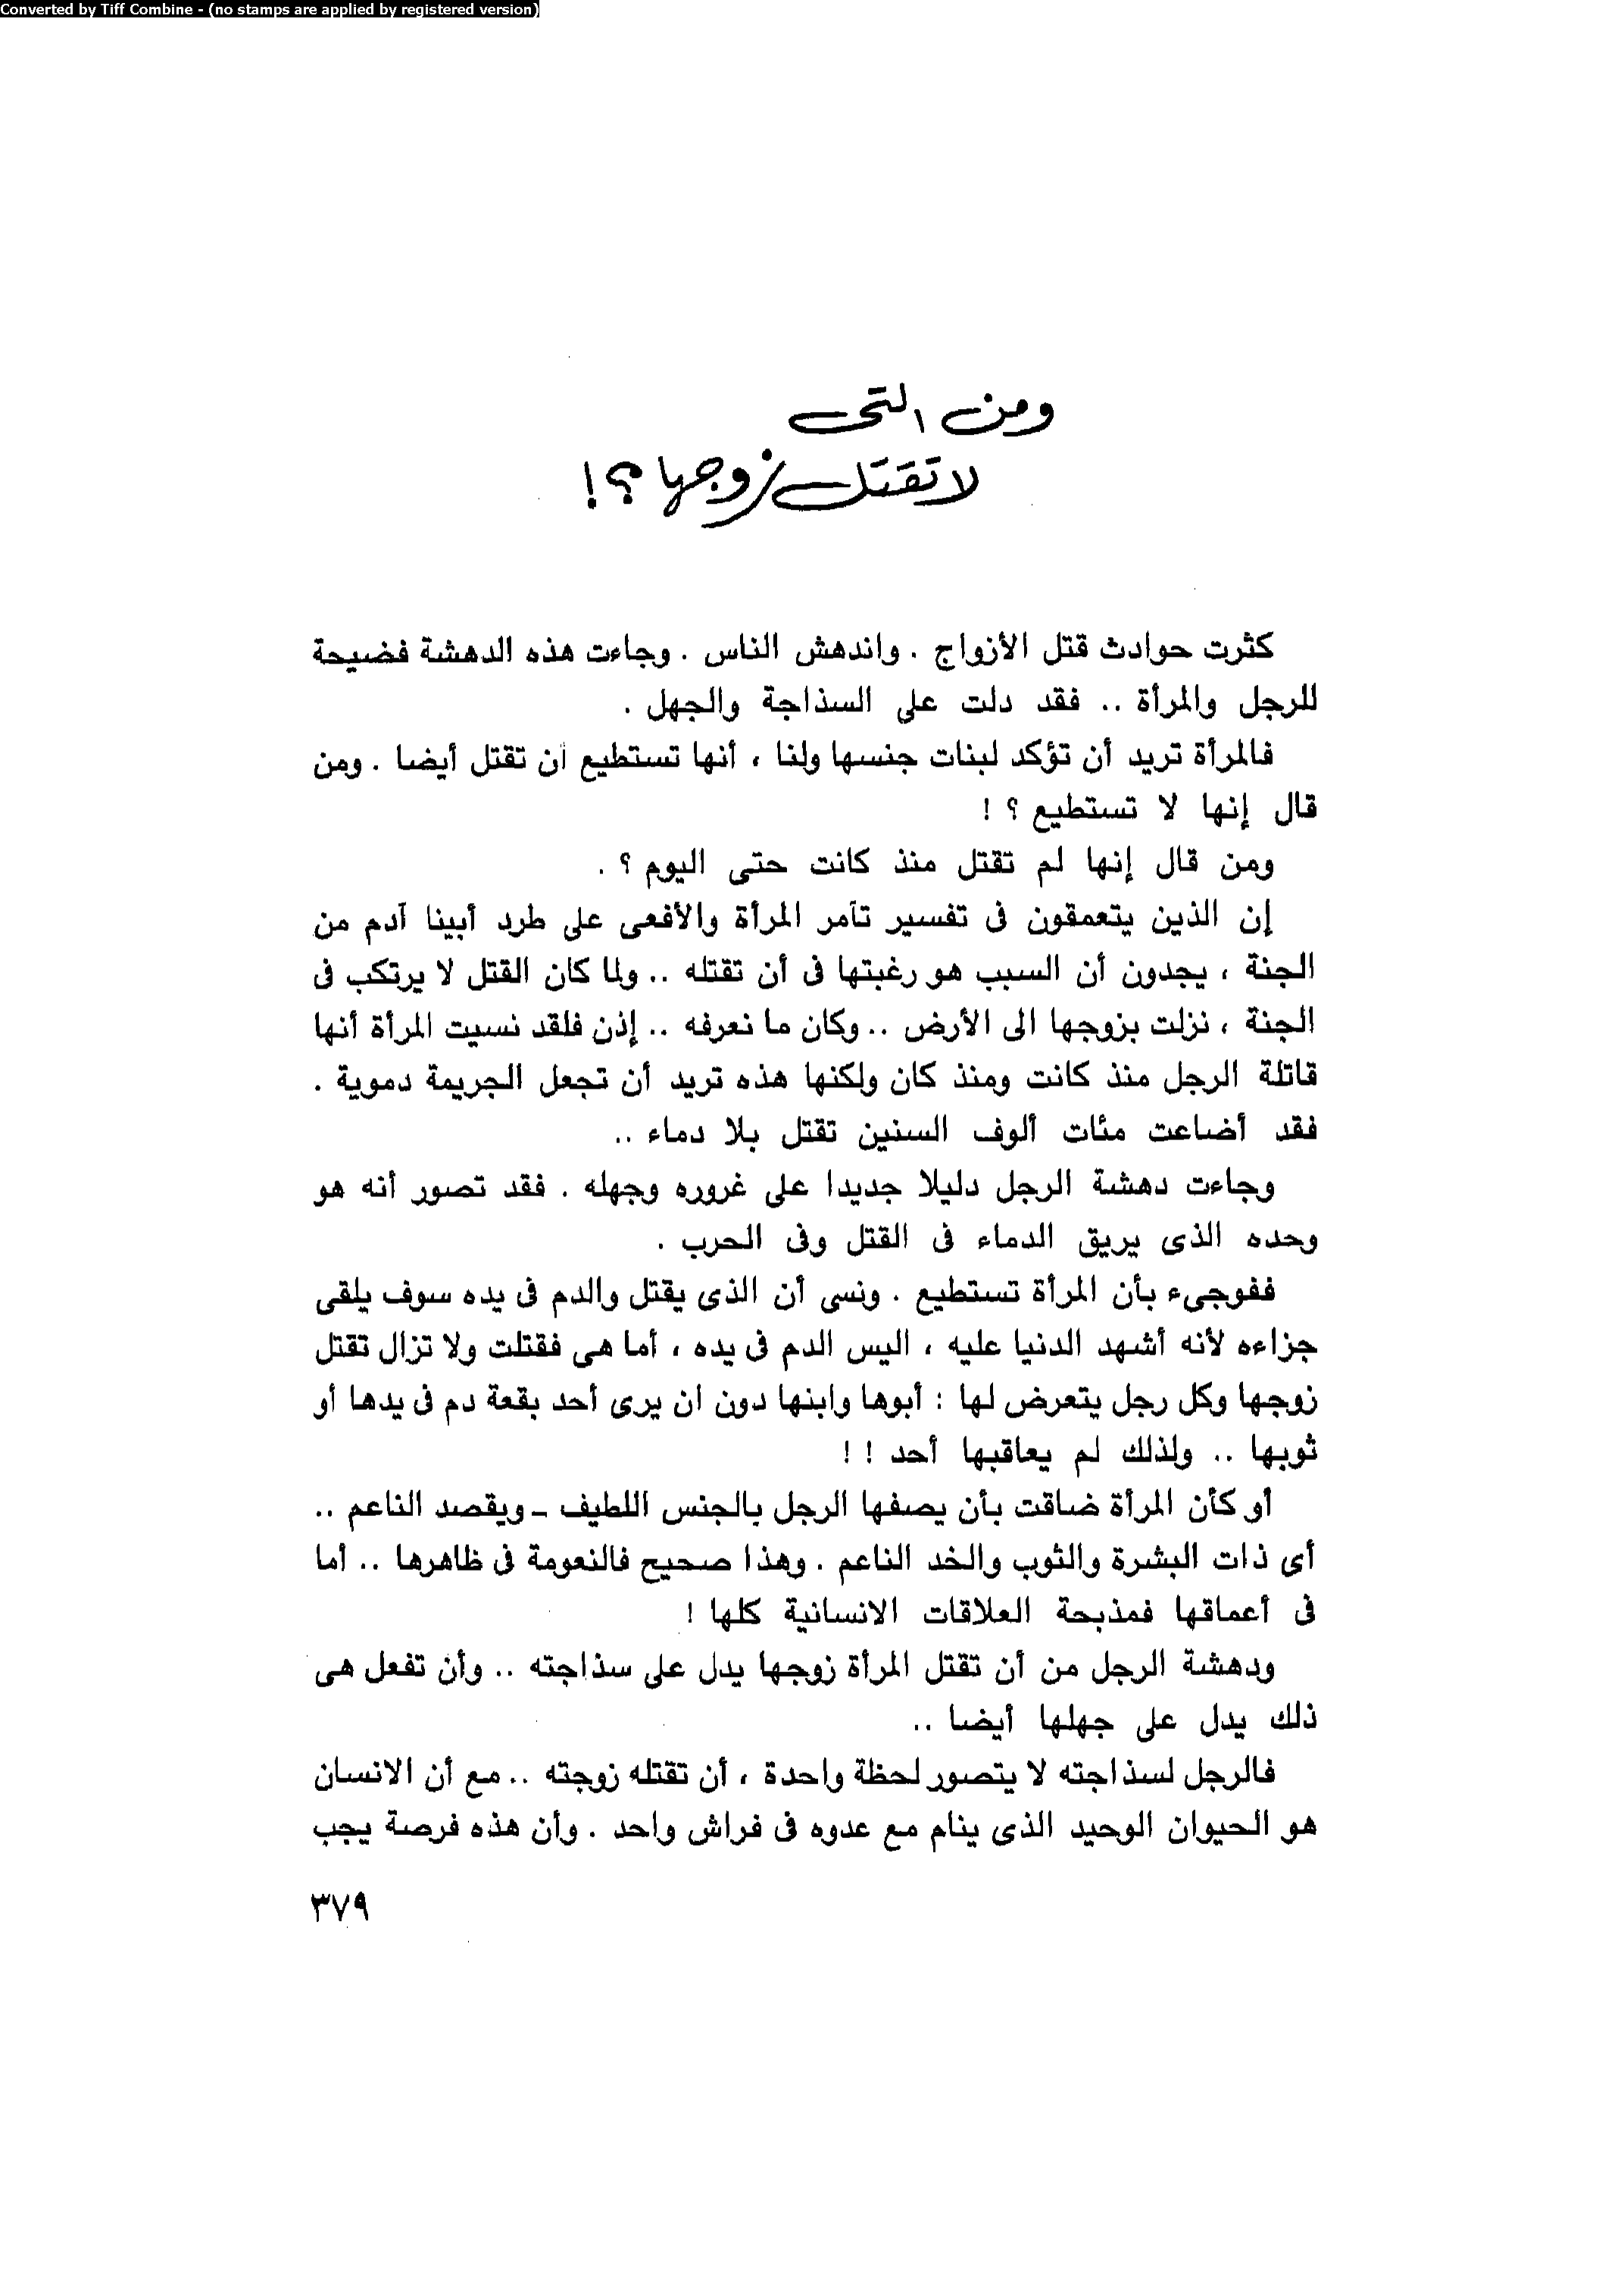 Converted by Tiff Combine - (no stamps are applied by registered version)
ومن التى
لا تقتل زوجها ؟!
كثرت حوادث قتل الأزواج . واندهش الناس . وجاءت هذه الدهشة فضيحة
للرجل والمرأة .. فقد دلت على السذاجة والجهل .
فالمرأة تريد أن تؤكد لبنات جنسها ولنا ، أنها تستطيع أن تقتل أيضا . ومن
قال إنها لا تستطيع ؟ !
ومن قال إنها لم تقتل منذ كانت حتى اليوم ؟ .
إن الذين يتعمقون فى تفسير تآمر المرأة والأفعى على طرد أبينا آدم من
الجنة ، يجدون أن السبب هو رغبتها فى أن تقتله .. ولما كان القتل لا يرتكب فى
الجنة ، نزلت بزوجها الى الأرض .. وكان ما نعرفه .. إذن فلقد نسيت المرأة أنها
قاتلة الرجل منذ كانت ومنذ كان ولكنها هذه تريد أن تجعل الجريمة دموية .
فقد أضاعت مئات ألوف السنين تقتل بلا دماء ..
وجاءت دهشة الرجل دليلا جديدا على غروره وجهله . فقد تصور أنه هو
وحده الذى يريق الدماء فى القتل وفى الحرب .
ففوجىء بأن المرأة تستطيع . ونسى أن الذى يقتل والدم فى يده سوف يلقى
جزاءه لأنه أشهد الدنيا عليه ، اليس الدم فى يده ، أما هى فقتلت ولا تزال تقتل
زوجها وكل رجل يتعرض لها : أبوها وابنها دون ان يرى أحد بقعة دم فى يدها أو
ثوبها .. ولذلك لم يعاقبها أحد ! !
أو كأن المرأة ضاقت بأن يصفها الرجل بالجنس اللطيف - ويقصد الناعم ..
أى ذات البشرة والثوب والخد الناعم . وهذا صحيح فالنعومة فى ظاهرها .. أما
فى أعماقها فمذبحة العلاقات الانسانية كلها !
ودهشة الرجل من أن تقتل المرأة زوجها يدل على سذاجته .. وأن تفعل هى
ذلك يدل على جهلها أيضا ..
فالرجل لسذاجته لا يتصور لحظة واحدة ، أن تقتله زوجته .. مع أن الانسان
هو الحيوان الوحيد الذى ينام مع عدوه فى فراش واحد . وأن هذه فرصة يجب
٣٧٩